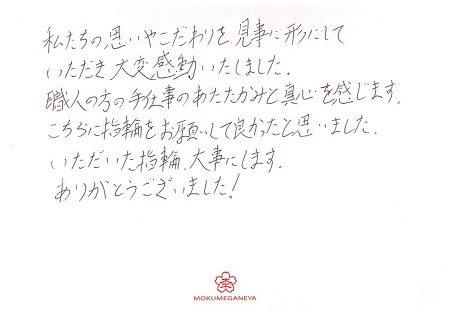 私たちの思いやこだわりを、見事に形にして
いただき大変感動いたしました。
職人の方の手仕事のあたたかみと真心を感じます。
こちらに指輪をお願いして良かったと思いました。
いただいた指輪、大事にします。
ありがとうございました!
MOKUMEGANEYA